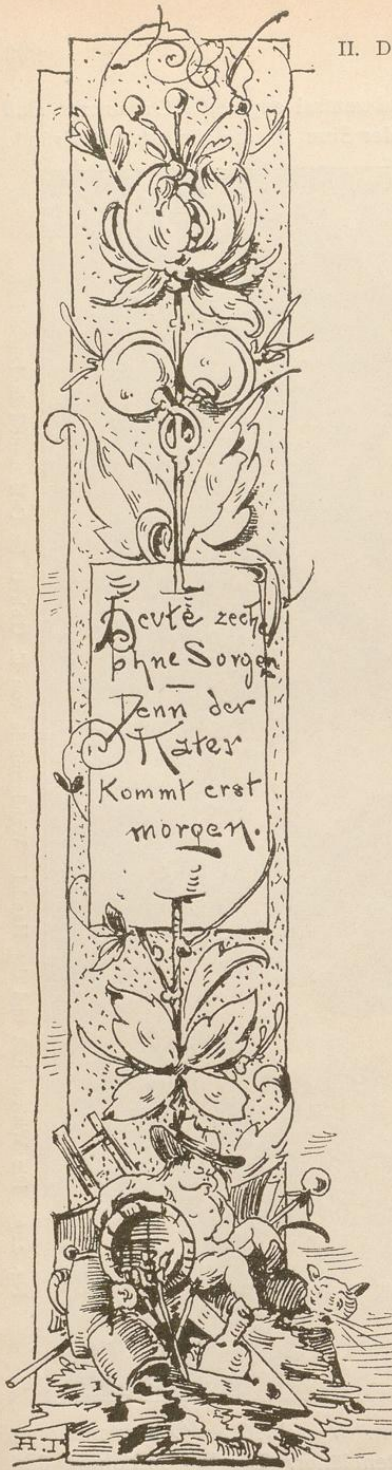 II. D
Heute zech
ohne Sorgen
—
Denn der
Kater
Kommt erst
morgen.
H.T.